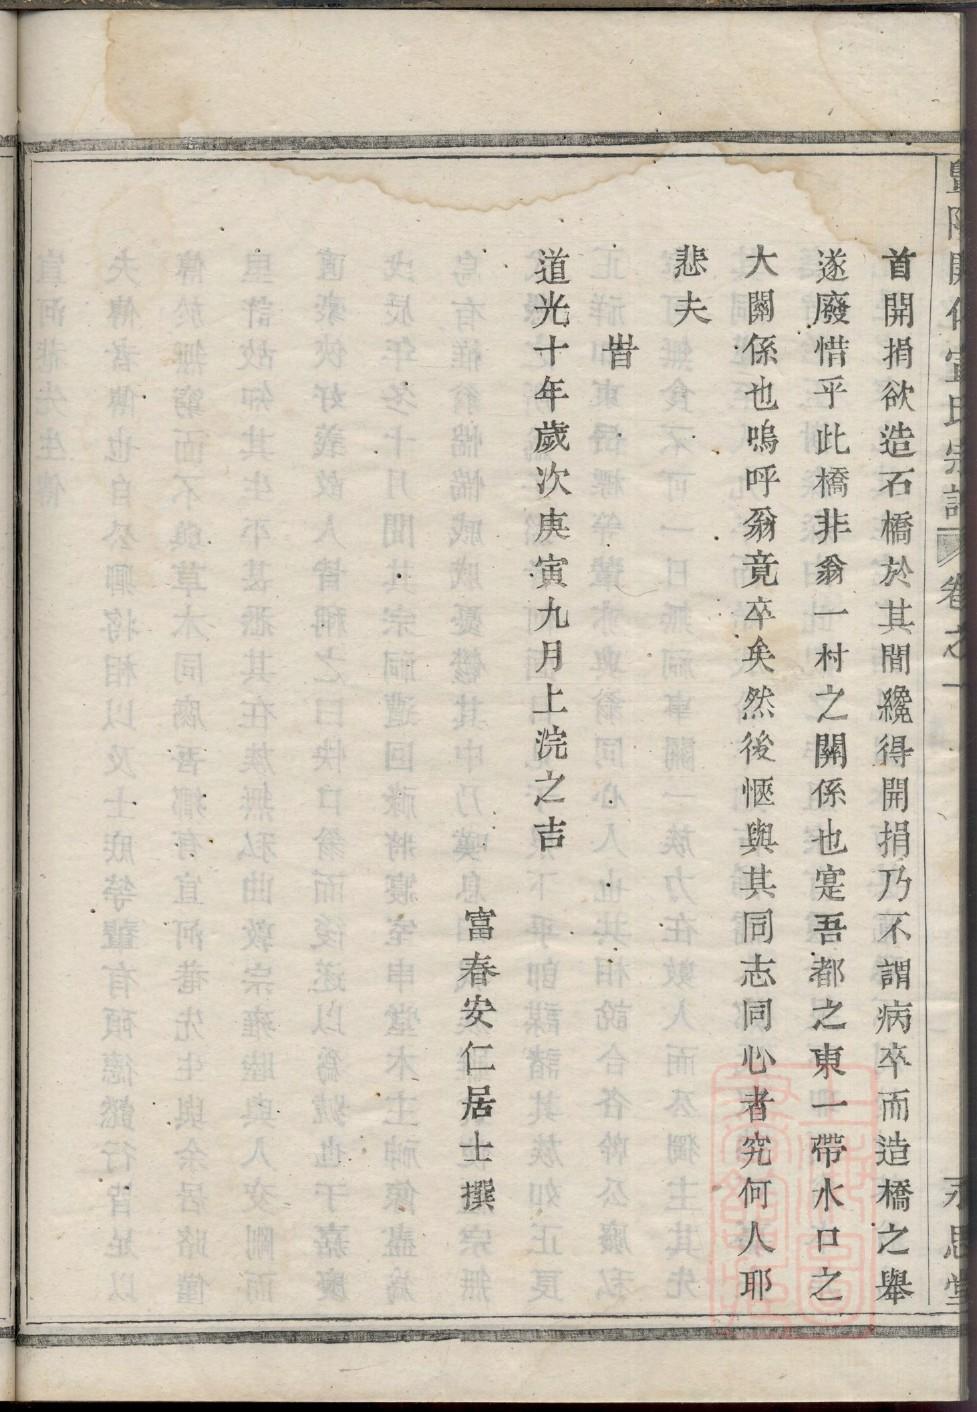 首開捐欲造石橋於其間纔得開捐乃不謂病卒而造橋之舉
遂廢惜乎此橋非翁一村之關係也寔吾都之東一帶水口之
大關係也嗚呼翁竟卒矣然後愜與其同志同心者究何人耶
悲夫
旹
道光十年歲次庚寅九月上浣之吉
富春安仁居士撰
開化宣氏宗譜 卷之一 永思堂